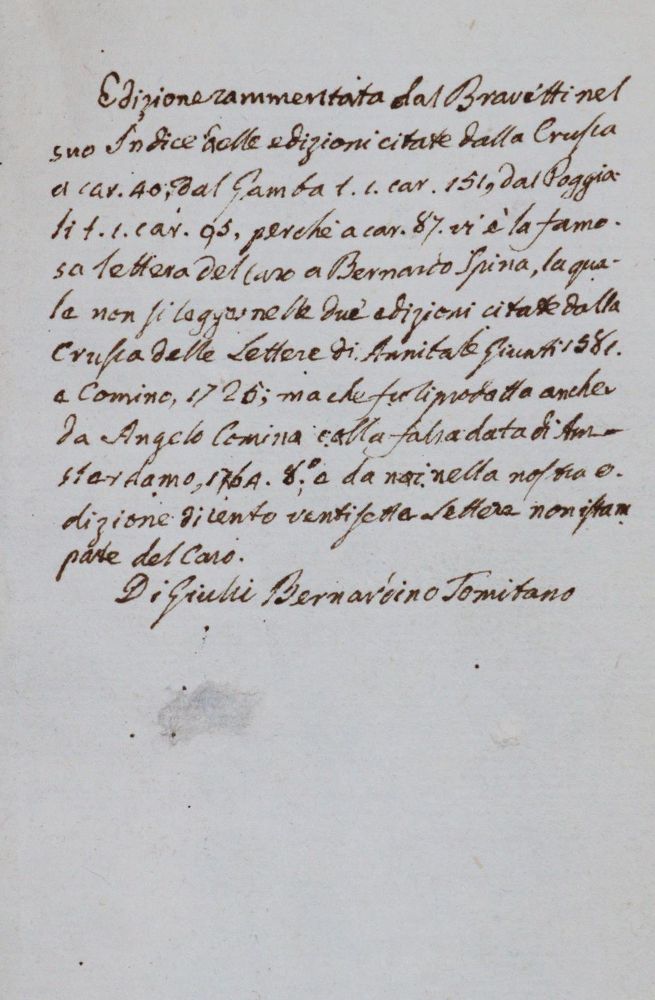 Edizione rammentata dal Bravetti nel
suo Indice delle edizioni citate dalla Crusca
a car. 40, dal Gamba t. 1. car. 151, dal Poggia-
li t. 1. car. 95, perchè a car. 87. vi è la famo-
sa lettera del Caro a Bernardo Spina, la qua-
le non si legge nelle due edizioni citate dalla
Crusca delle Lettere di Annibale Giunti 1581.
e Comino, 1725; ma che fu riprodotta anche
da Angelo Comino colla falsa data di Am-
sterdamo, 1764. 8.º e da noi nella nostra e-
dizione di cento ventisette Lettere non istam
pate del Caro.
Di Giulio Bernardino Tomitano